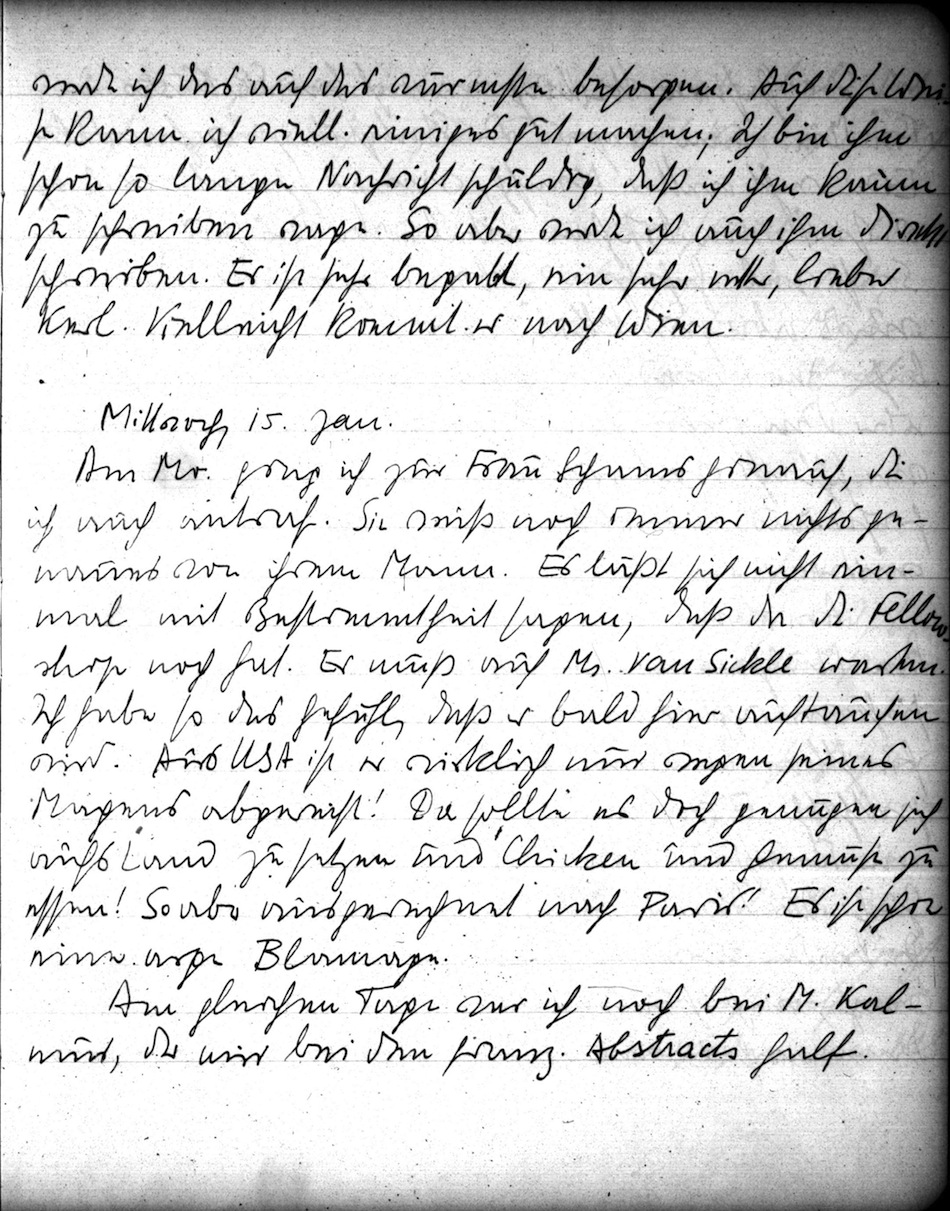 werde ich das auch das nächste besorgen. Auf diese Wei-
se kann ich viell. einiges gut machen; Ich bin ihm
schon so lange Nachricht schuldig, daß ich ihm kaum
zu schreiben wage. So aber werde ich auch ihm direkt
schreiben. Er ist sehr begabt, ein sehr netter, lieber
Kerl. Vielleicht kommt er nach Wien.
Mittwoch, 15. Jan.
Am Mo. ging ich zur Frau hinauf, die
ich auch antraf. Sie weiß noch immer nichts ge-
naues von ihrem Mann. Es läßt sich nicht ein-
mal mit Bestimmtheit sagen, daß er die Fellow
ship noch hat. Er muß auf Mr. Van Sickle warten.
Ich habe so das Gefühl, daß er bald hier auftauchen
wird. Aus USA ist er wirklich nur wegen seines
Magens abgereist! Da sollte es doch genügen sich
aufs Land zu setzen und Chicken und Gemüse zu
essen! So aber ausgerechnet nach Paris! Es ist schon
eine arge Blamage.
Am gleichen Tage war ich noch bei M. Kal-
mus, der mir bei den franz. Abstracts half.